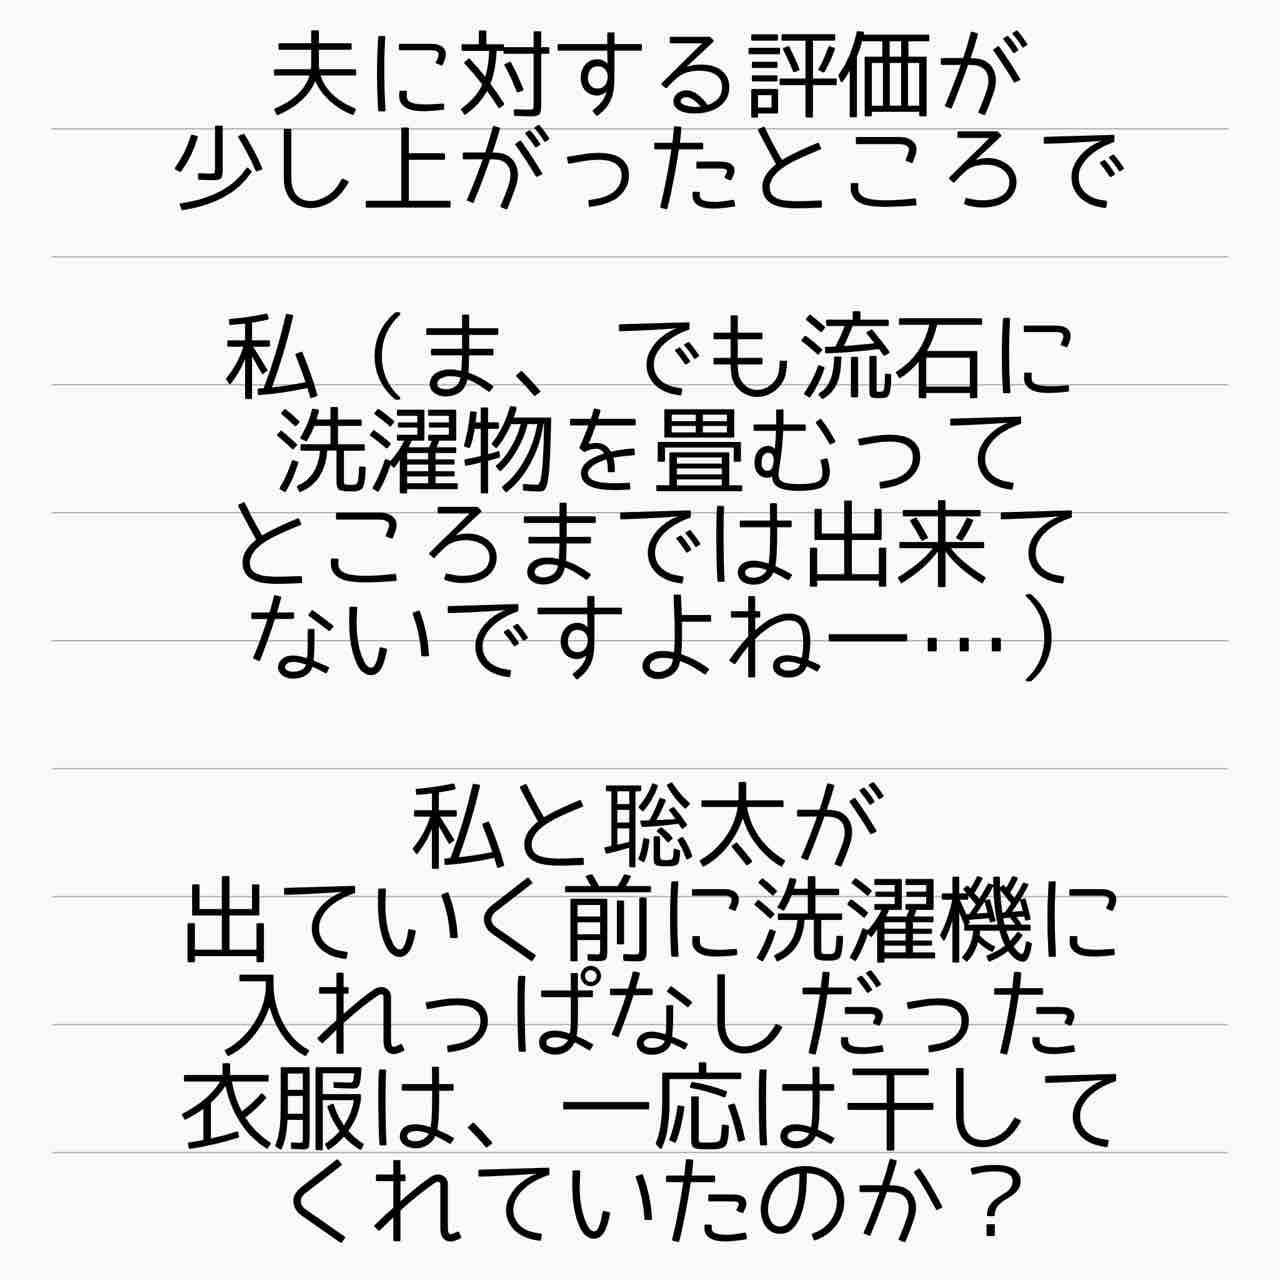 夫に対する評価が
少し上がったところで
私（ま、でも流石に
洗濯物を畳むって
ところまでは出来て
ないですよねー…）
私と聡太が
出ていく前に洗濯機に
入れっぱなしだった
衣服は、一応は干して
くれていたのか？